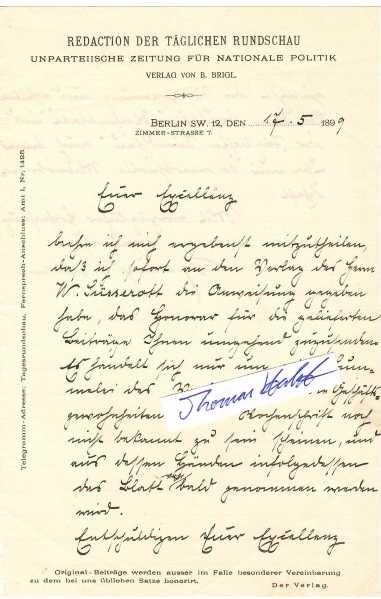 REDACTION DER TÄGLICHEN RUNDSCHAU
UNPARTEIISCHE ZEITUNG FÜR NATIONALE POLITIK
VERLAG VON B. BRIGL.
BERLIN SW. 12, DEN 17. 5 1899
ZIMMER-STRASSE 7.
Telegramm-Adresse: Tagesrundschau. Fernsprech-Anschluss: Amt I, Nr. 1495.
Euer Excellenz
beehre ich mich ergebenst mitzutheilen,
daß ich sofort an den Verlag des Herrn
W. Süsserott die Anweisung gegeben
habe, das Honorar für die gelieferten
Beiträge Ihnen umgehend zuzusenden.
Es handelt sich nur um
des
Geschäfts-
gewohnheiten Wochenschrift noch
nicht bekannt zu sein scheinen, und
aus dessen Händen infolgedessen
das Blatt bald genommen werden
wird.
Entschuldigen Euer Excellenz
Original-Beiträge werden ausser im Falle besonderer Vereinbarung
zu dem bei uns üblichen Satze honorirt.
Der Verlag.